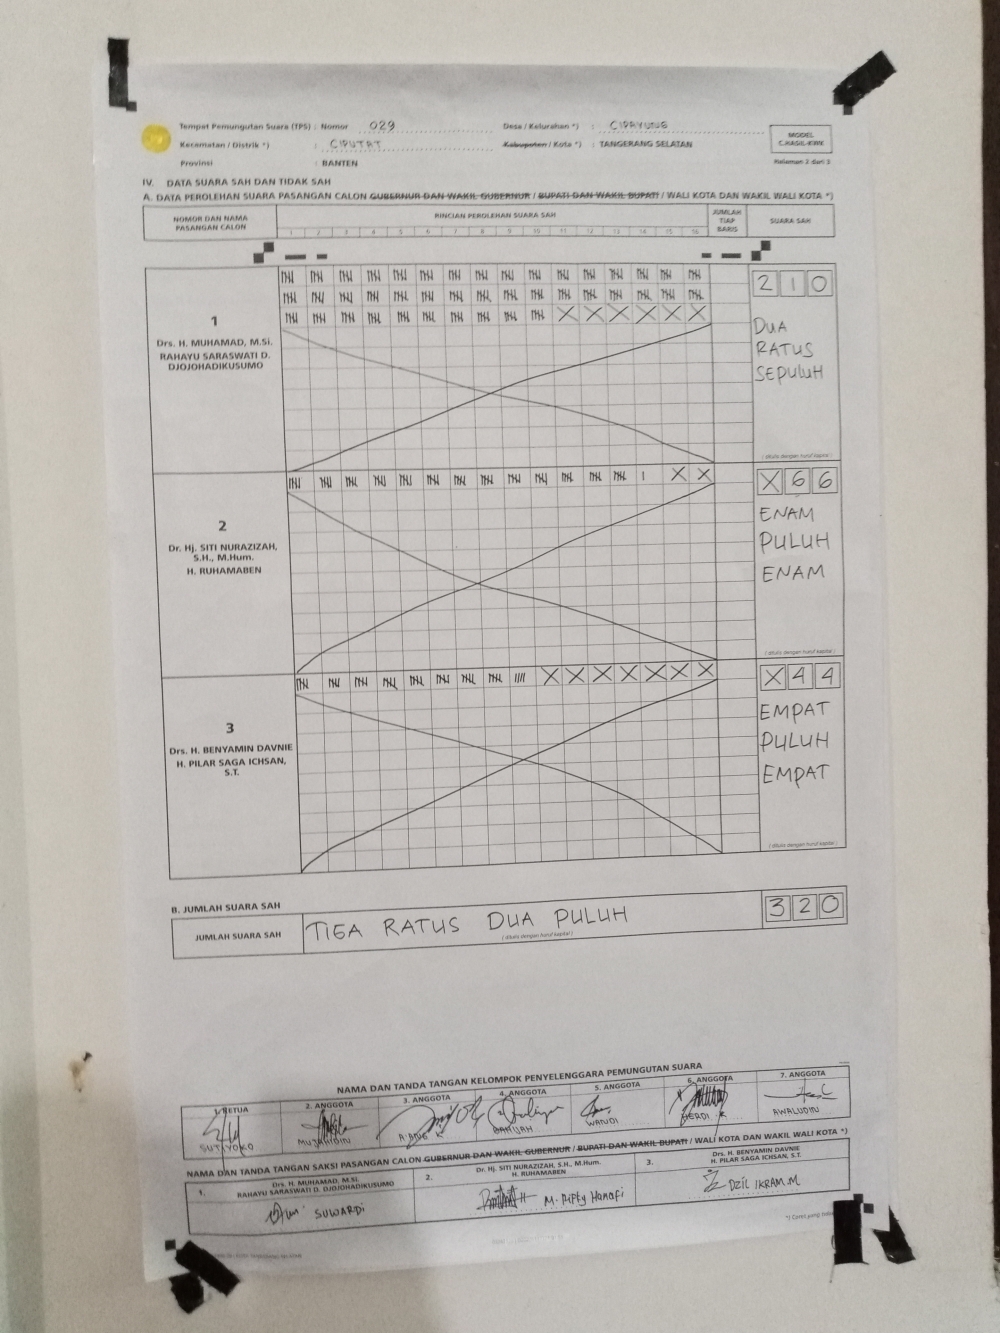 Tempat Pemungutan Suara (TPS) : Nomor 029 Desa / Kelurahan *) : CIPAYUNG
Kecamatan / Distrik *) : CIPUTAT Kabupaten / Kota *) : TANGERANG SELATAN
Provinsi : BANTEN
MODEL
C.HASIL-KWK
Halaman 2 dari 3
IV. DATA SUARA SAH DAN TIDAK SAH
A. DATA PEROLEHAN SUARA PASANGAN CALON GUBERNUR DAN WAKIL GUBERNUR / BUPATI DAN WAKIL BUPATI / WALI KOTA DAN WAKIL WALI KOTA *)
NOMOR DAN NAMA
PASANGAN CALON
RINCIAN PEROLEHAN SUARA SAH
1 2 3 4 5 6 7 8 9 10 11 12 13 14 15 16
JUMLAH
TIAP
BARIS
SUARA SAH
1
Drs. H. MUHAMAD, M.Si.
RAHAYU SARASWATI D.
DJOJOHADIKUSUMO
210
DUA
RATUS
SEPULUH
( ditulis dengan huruf kapital )
2
Dr. Hj. SITI NURAZIZAH,
S.H., M.Hum.
H. RUHAMABEN
X66
ENAM
PULUH
ENAM
( ditulis dengan huruf kapital )
3
Drs. H. BENYAMIN DAVNIE
H. PILAR SAGA ICHSAN,
S.T.
X44
EMPAT
PULUH
EMPAT
( ditulis dengan huruf kapital )
B. JUMLAH SUARA SAH
JUMLAH SUARA SAH TIGA RATUS DUA PULUH 320
( ditulis dengan huruf kapital )
NAMA DAN TANDA TANGAN KELOMPOK PENYELENGGARA PEMUNGUTAN SUARA
1. KETUA 2. ANGGOTA 3. ANGGOTA 4. ANGGOTA 5. ANGGOTA 6. ANGGOTA 7. ANGGOTA
SUTIYOKO MUJAHIDIN WANDI HERDI K AWALUDIN
NAMA DAN TANDA TANGAN SAKSI PASANGAN CALON GUBERNUR DAN WAKIL GUBERNUR / BUPATI DAN WAKIL BUPATI / WALI KOTA DAN WAKIL WALI KOTA *)
1. Drs. H. MUHAMAD, M.Si.
RAHAYU SARASWATI D. DJOJOHADIKUSUMO
SUWARDI
2. Dr. Hj. SITI NURAZIZAH, S.H., M.Hum.
H. RUHAMABEN
M. Rifky Hanafi
3. Drs. H. BENYAMIN DAVNIE
H. PILAR SAGA ICHSAN, S.T.
DZIL IKRAM.M